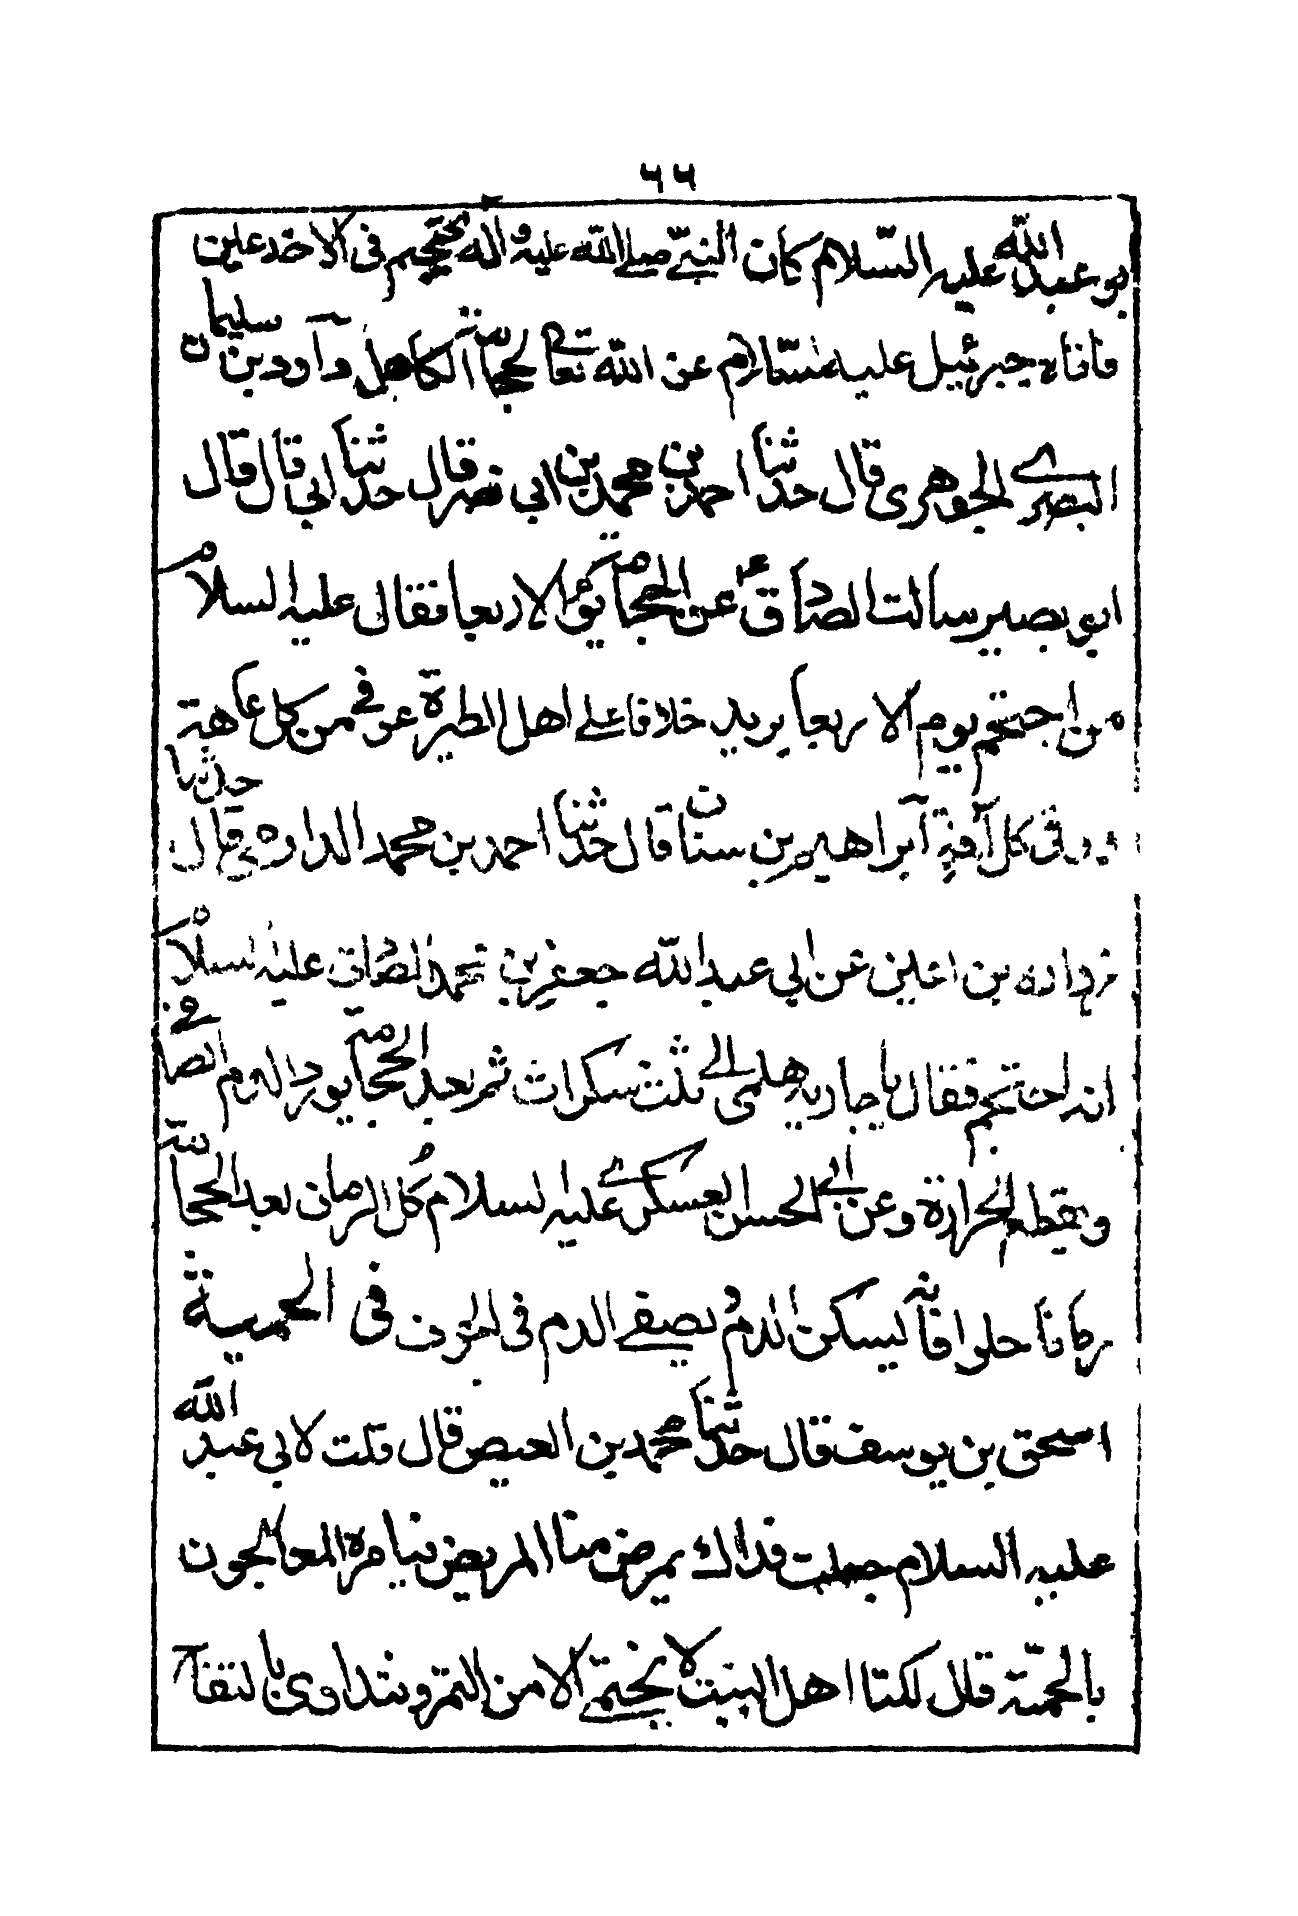 ٦٦
بو عبد الله عليه السلام كان النبي صلى الله عليه و آله يحتجم في الاخدعين
فاتاه جبرئيل عليه السلام عن الله تعالى بحجامة الكاهل داود بن سليمان
البصرى الجوهرى قال حدثنا احمد بن محمد بن ابى نصر قال حدثنا ابى قال قال
ابو بصير سالت الصادق عن الحجامة يوم الاربعا فقال عليه السلام
من احتجم يوم الاربعا يريد خلافا على اهل الطيرة عوفى من كل عاهة
و وقى كل آفة ابراهيم بن سنان قال حدثنا احمد بن محمد الدارمى قال حدثنا
زراره بن اعين عن ابى عبد الله جعفر بن محمد الصادق عليه السلام
انه احتجم فقال يا جاريه هلمى الى ثلث سكرات ثم بعد الحجامة يورد الدم الصافى
و يقطع الحرارة و عن ابى الحسن العسكرى عليه السلام كل الرمان بعد الحجامة
رمانا حلوا فانه يسكن الدم و يصفى الدم فى الجوف فى الحمية
اسحق بن يوسف قال حدثنا محمد بن العيص قال قلت لابى عبد الله
عليه السلام جعلت فداك يمرض منا المريض فيامره المعالجون
بالحمية قال لكنا اهل البيت لا نحتمى الا من التمر و نتداوى بالتفاح